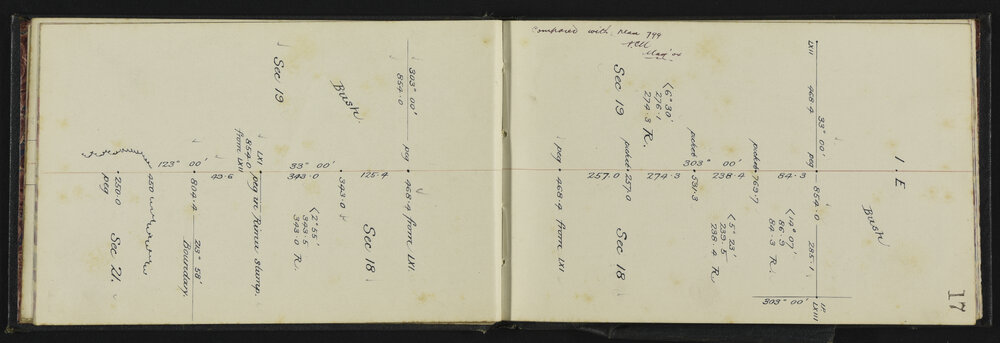 Sec 19
Bush
303° 00'
854.0
peg
468.4 from LXI.
125.4
343.0
33° 00'
343.0
<2° 55'
343.5
343.0 R.
Sec 18
LXI
854.0
from LXII
peg in Rimu stump.
43.6
123° 00'
804.4
213° 58'
Boundary.
450
250.0
peg
Sec 21.
Compared with Plan 799
17
LXII
468.4
33° 00'
peg
854.0
285.1
LXIII
303° 00'
I. E
Bush
84.3
<14° 07'
86.9
84.3 R.
picket
763.7
303° 00'
238.4
<5° 23'
239.5
238.4 R
picket
531.3
274.3
<6° 30'
276.1
274.3 R.
Sec 19
picket
257.0
257.0
Sec 18
peg
468.4 from LXI